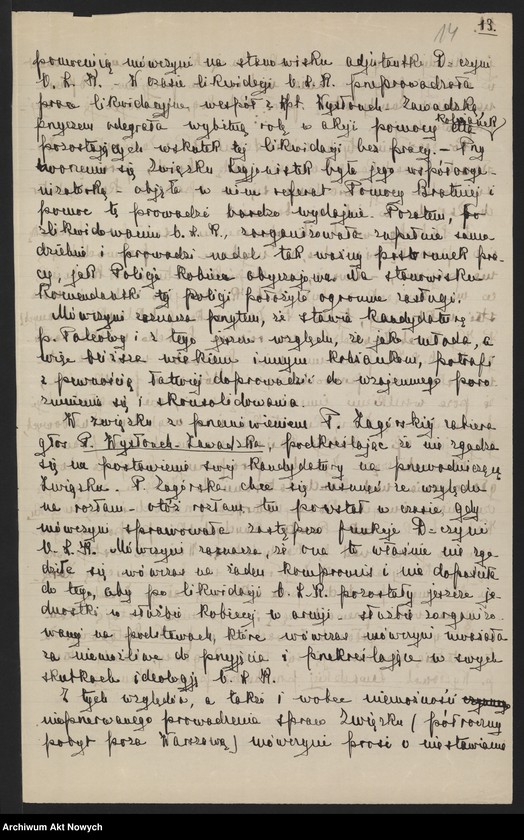 14 13.
pomocnicą mówczyni na stanowisku adjutantki D-czyni
O. L. K. - W czasie likwidacji O. L. K. przeprowadzała
prace likwidacyjne wespół z kpt. Wysłouch-Zawadzką
przyczem odegrała wybitną rolę w akcji pomocy dla koleżanek
pozostających wskutek tej likwidacji bez pracy. - Przy
tworzeniu się Związku Legjonistek była jego współorga-
nizatorką - objęła w nim referat Pomocy Bratniej i
pomoc tę prowadzi bardzo wydajnie. Pozatem, po
zlikwidowaniu O. L. K., zorganizowała zupełnie samo-
dzielnie i prowadzi nadal tak ważny posterunek pra-
cy, jak Policja kobieca obyczajowa. Na stanowisku
Komendantki tej policji położyła ogromne zasługi.
Mówczyni zaznacza przytem, że stawia kandydaturę
p. Paleolog i z tego jeszcze względu, że jako młoda, a
więc bliższa wiekiem innym koleżankom, potrafi
z pewnością łatwiej doprowadzić do wzajemnego poro-
zumienia się i skonsolidowania.
W związku z przemówieniem P. Zagórskiej zabiera
głos P. Wysłouch-Zawadzka, podkreślając, że nie zgadza
się na postawienie swej kandydatury na przewodniczącą
Związku. P. Zagórska chce się usunąć ze względu
na rozłam - otóż rozłam ten powstał w czasie gdy
mówczyni sprawowała zastępczo funkcje D-czyni
O. L. K. Mówczyni zaznacza, że ona to właśnie nie zgo-
dziła się wówczas na żaden kompromis i nie dopuściła
do tego, aby po likwidacji O. L. K. pozostały jeszcze je-
dnostki w służbie kobiecej w armji - służbie zorganizo-
wanej na podstawach, które wówczas mówczyni uważała
za niemożliwe do przyjęcia i przekreślające w swych
skutkach ideologję O. L. K.
Z tych względów, a także i wobec niemożności
nieprzerwanego prowadzenia spraw Związku (półroczny
pobyt poza Warszawą) mówczyni prosi o niestawianie
Archiwum Akt Nowych